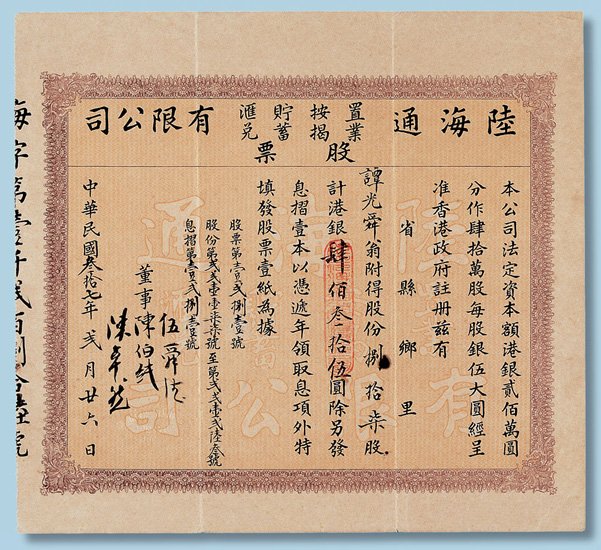 陸海通 置業 按揭 貯蓄 匯兑 有限公司
股票
本公司法定資本額港銀貳佰萬圓
分作肆拾萬股每股銀伍大圓經呈
准香港政府註册茲有
省 縣 鄉 里
譚光舜翁附得股份捌拾柒股
計港銀肆佰叁拾伍圓除另發
息摺壹本以憑遞年領取息項外特
填發股票壹紙為據
股票第壹弍捌壹號
股份第弍弍壹壹柒柒號至第弍弍壹弍陸叁號
息摺第壹弍捌壹號
伍舜德
董事陳伯
陳
中華民國叁拾七年弍月廿六日
海字第壹仟弍百捌拾壹號
陸海通
有限公司